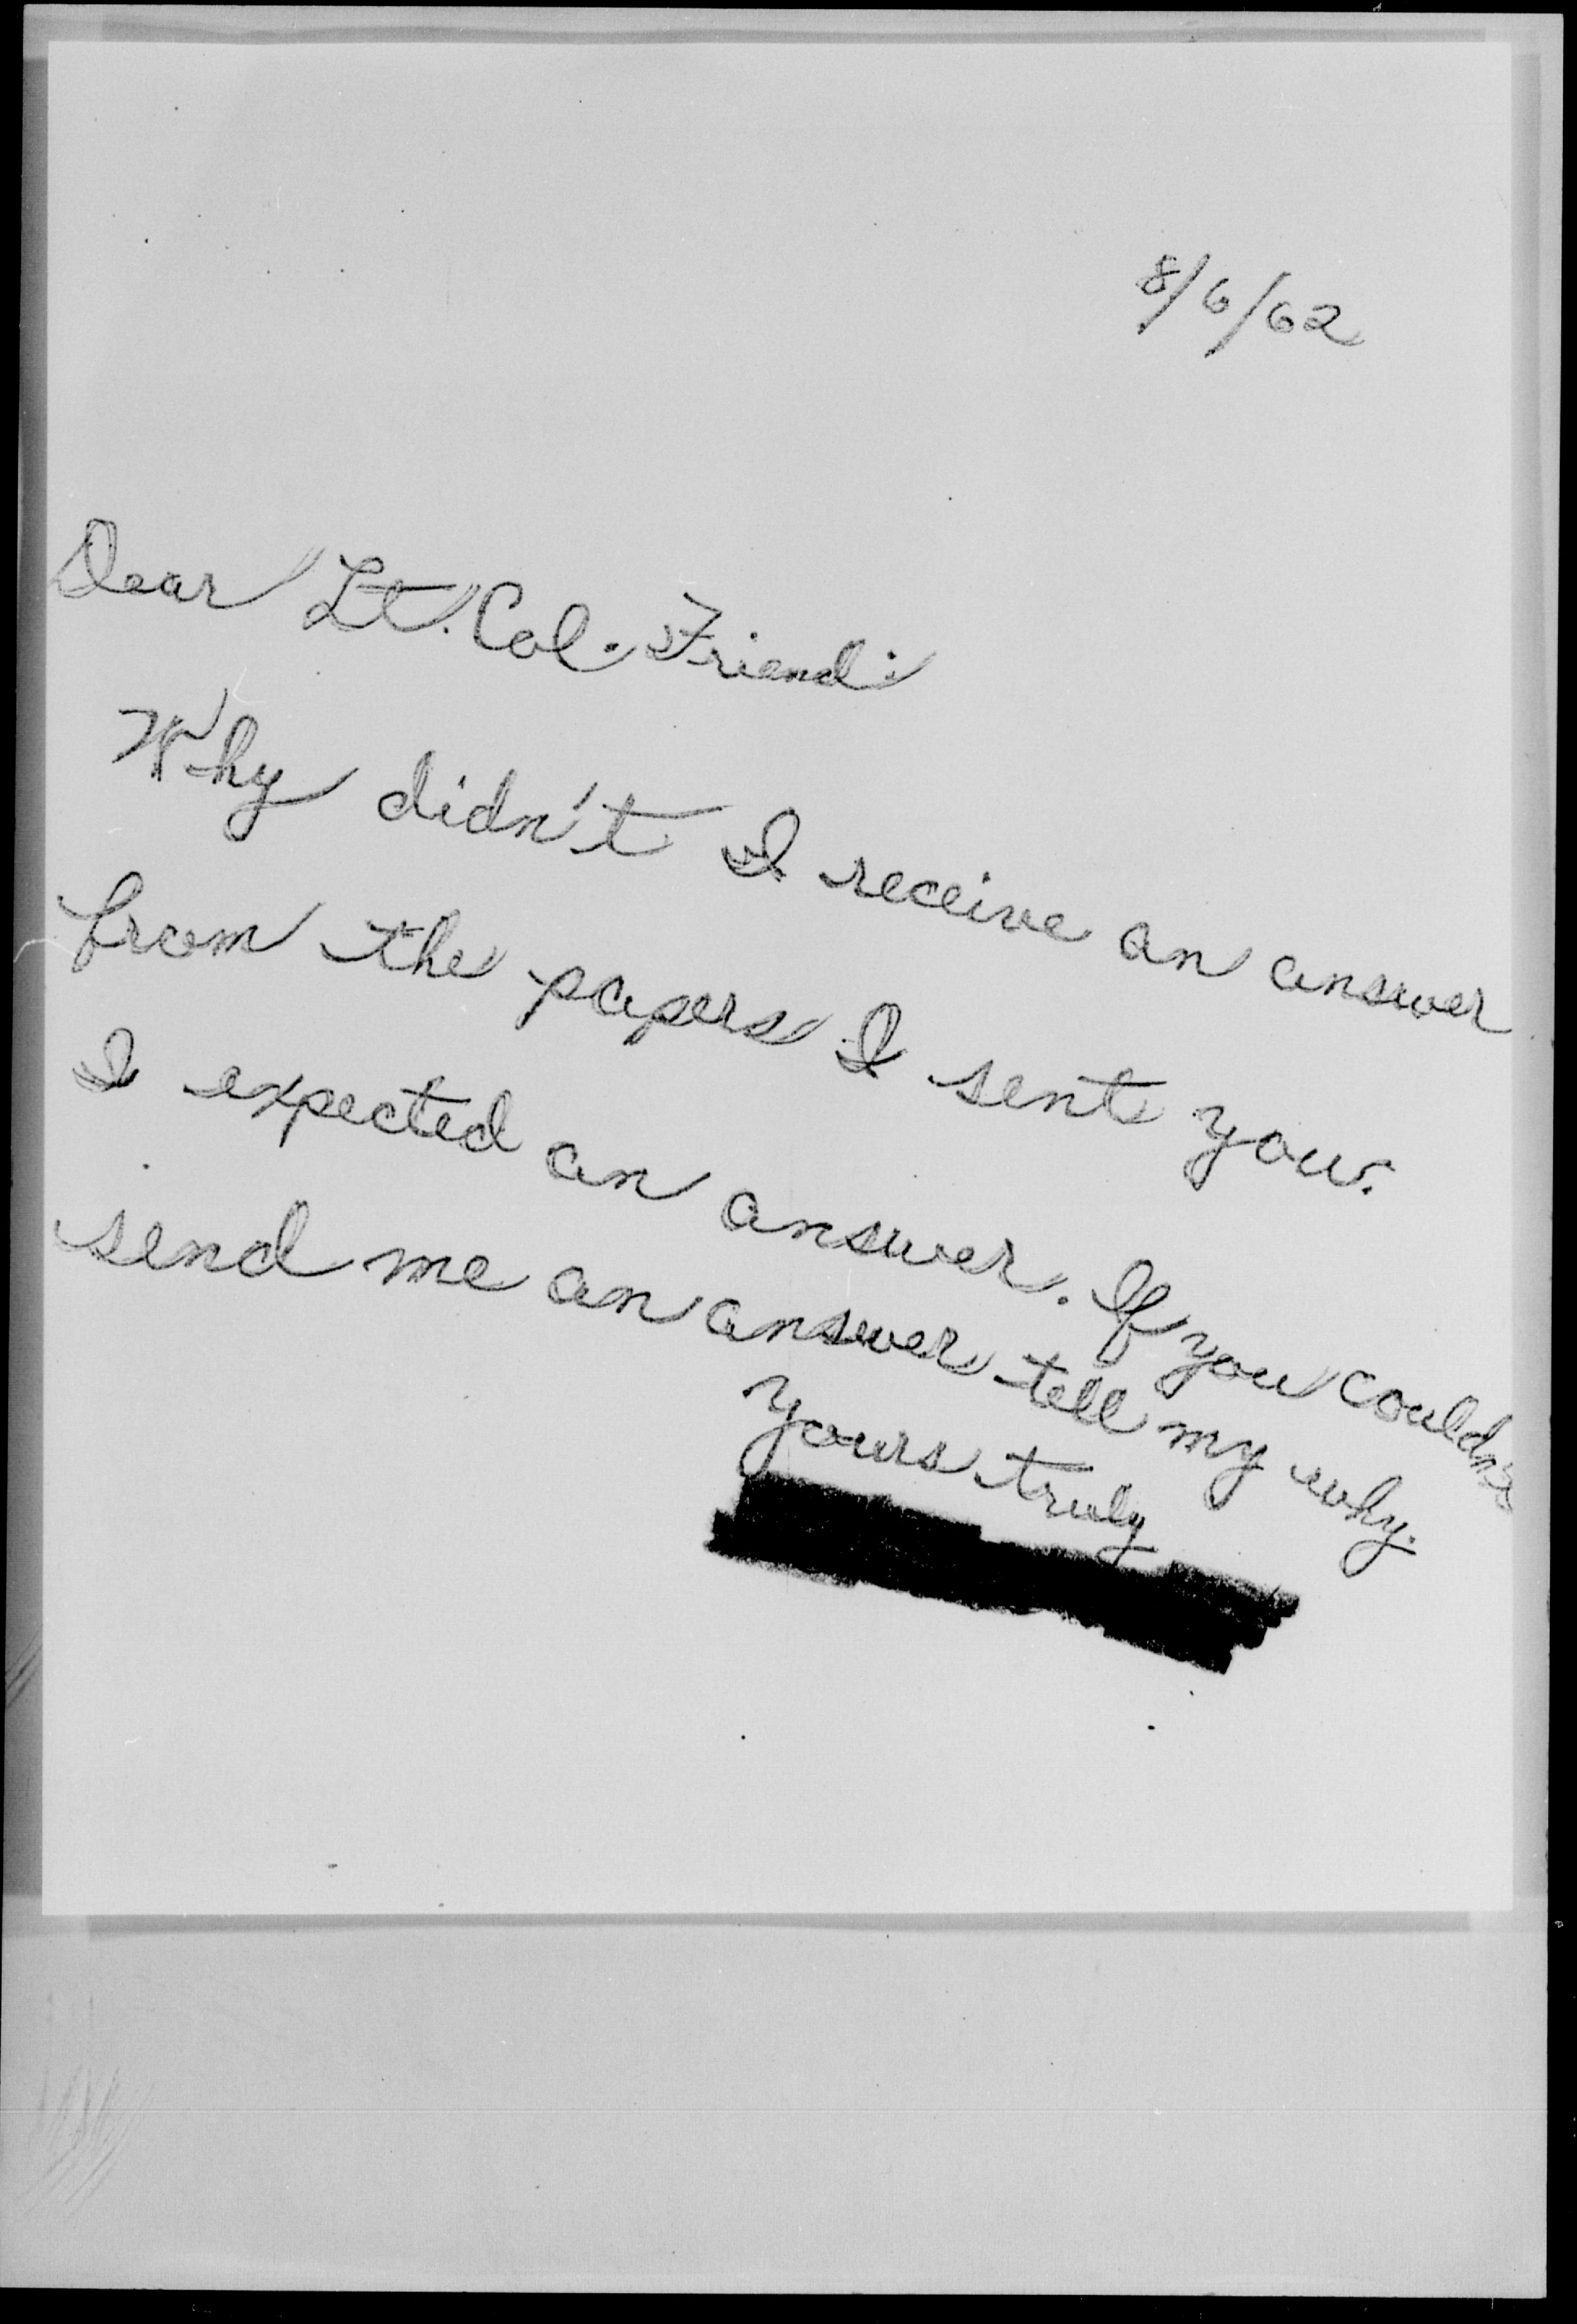 8/6/62
Dear Lt. Col. Friend:
Why didn't I receive an answer
from the papers I sent you.
I expected an answer. If you couldn't
send me an answer tell my why.
Yours truly